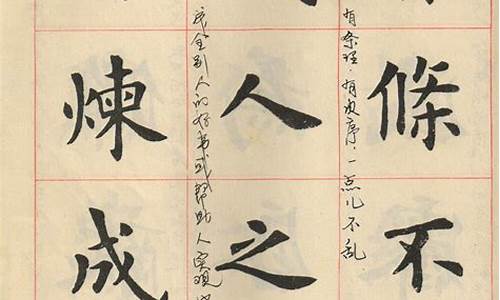 條不
有条理，有次序，一点儿不乱
人之
成全别人的好事或帮助人实现
煉成